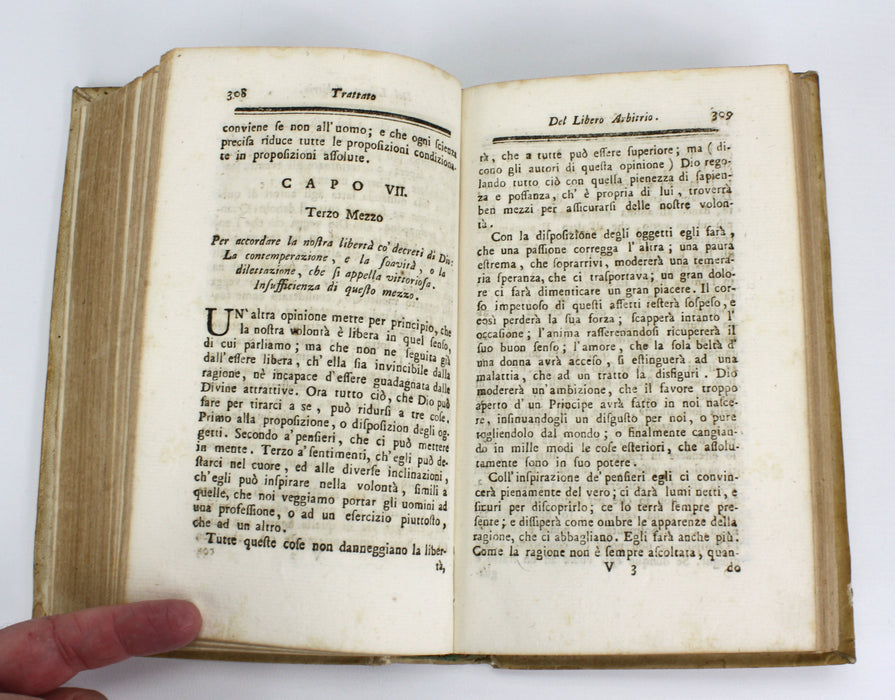 308 Trattato
conviene se non all'uomo; e che ogni scienza
precisa riduce tutte le proposizioni condiziona-
te in proposizioni assolute.
CAPO VII.
Terzo Mezzo
Per accordare la nostra libertà co' decreti di Dio:
La contemperazione, e la soavità, o la
dilettazione, che si appella vittoriosa.
Insufficienza di questo mezzo.
UN' altra opinione mette per principio, che
la nostra volontà è libera in quel senso,
di cui parliamo; ma che non ne seguita già
dall'essere libera, ch' ella sia invincibile dalla
ragione, nè incapace d'essere guadagnata dalle
Divine attrattive. Ora tutto ciò, che Dio può
fare per tirarci a se, può ridursi a tre cose.
Primo alla proposizione, o disposizion degli og-
getti. Secondo a' pensieri, che ci può mettere
in mente. Terzo a' sentimenti, ch'egli può de-
starci nel cuore, ed alle diverse inclinazioni,
ch'egli può inspirare nella volontà, simili a
quelle, che noi veggiamo portar gli uomini ad
una professione, o ad un esercizio piuttosto,
che ad un altro.
Tutte queste cose non danneggiano la liber-
tà,
Del Libero Arbitrio. 309
tà, che a tutte può essere superiore; ma (di-
cono gli autori di questa opinione) Dio rego-
lando tutto ciò con quella pienezza di sapien-
za e possanza, ch' è propria di lui, troverà
ben mezzi per assicurarsi delle nostre volon-
tà.
Con la disposizione degli oggetti egli farà,
che una passione corregga l'altra; una paura
estrema, che soprarrivi, modererà una temera-
ria speranza, che ci trasportava; un gran dolo-
re ci farà dimenticare un gran piacere. Il cor-
so impetuoso di questi affetti resterà sospeso, e
così perderà la sua forza; scapperà intanto l'
occasione; l'anima rasserenandosi ricupererà il
suo buon senso; l'amore, che la sola beltà d'
una donna avrà acceso, si estinguerà ad una
malattia, che ad un tratto la disfiguri. Dio
modererà un'ambizione, che il favore troppo
aperto d'un Principe avrà fatto in noi nasce-
re, insinuandogli un disgusto per noi, o pure
togliendolo dal mondo; o finalmente cangian-
do in mille modi le cose esteriori, che assolu-
tamente sono in suo potere.
Coll'inspirazione de' pensieri egli ci convin-
cerà pienamente del vero; ci darà lumi netti, e
sicuri per discoprirlo; ce lo terrà sempre pre-
sente; e dissiperà come ombre le apparenze della
ragione, che ci abbagliano. Egli farà anche più.
Come la ragione non è sempre ascoltata, quan-
V 3 do